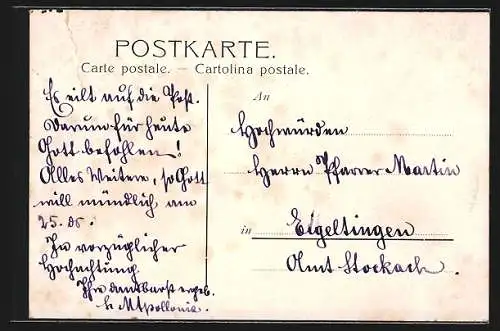 POSTKARTE.
Carte postale. — Cartolina postale.
Es eilt auf die Post.
Darum für heute
Gott befohlen!
Alles Weitere, so Gott
will mündlich am
25. ds.
In vorzüglicher
Hochachtung
Ihre dankbarst ergeb.
An
Hochwürden
Herrn Pfarrer Martin
in Eigeltingen
Amt Stockach.